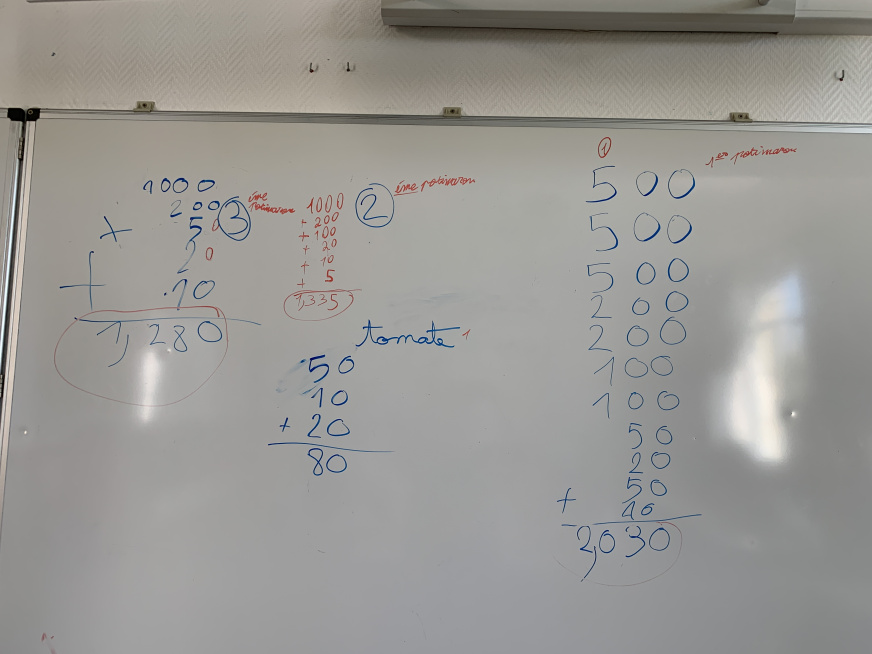 1000
200
+ 50
20
+ 10
1,280
3
ème
Potimaron
1000
+ 200
+ 100
+ 20
+ 10
+ 5
1,335
2
ème potimaron
tomate 1
50
10
+ 20
80
1
1ere potimaron
500
500
500
200
200
100
100
50
20
50
+ 10
2,030